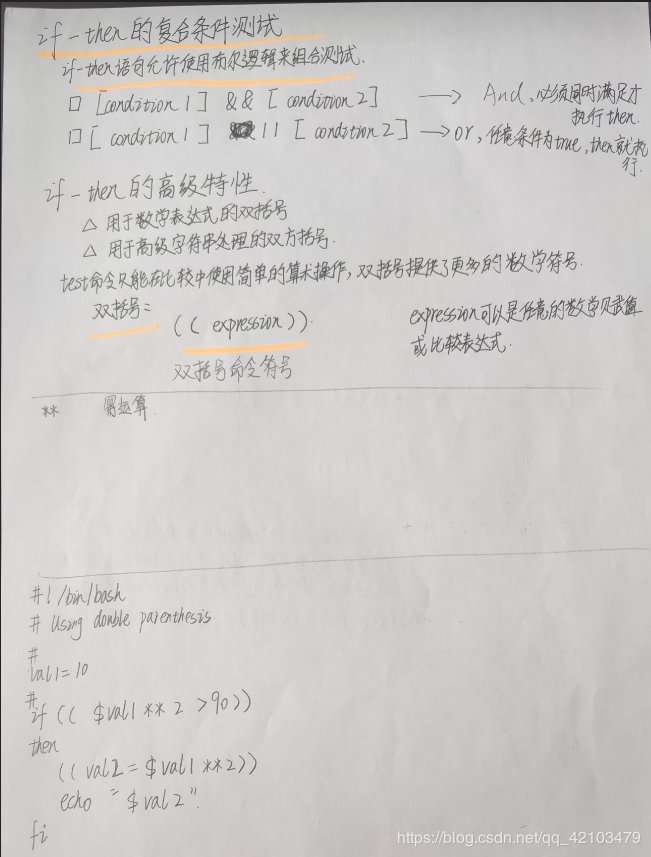 if-then的复合条件测试
if-then语句允许使用布尔逻辑来组合测试.
□ [condition 1] && [condition 2] → And,必须同时满足才
执行then.
□ [condition 1] || [condition 2] → or,任意条件为true,then就执
行.
if-then的高级特性.
△ 用于数学表达式的双括号
△ 用于高级字符串处理的双方括号.
test命令只能在比较中使用简单的算术操作,双括号提供了更多的数学符号.
双括号: ((expression)). expression可以是任意的数学赋值
或比较表达式.
双括号命令符号
** 幂运算
#!/bin/bash
# Using double parenthesis
#
val1=10
#
if (( $val1 ** 2 >90))
then
((val2 = $val1 **2))
echo "$val2".
fi
https://blog.csdn.net/qq_42103479